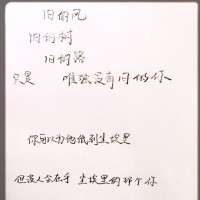 旧的风
旧的树
旧的路
只是 唯独没有旧的你
你可以为他低到尘埃里
但没人会在乎 尘埃里的那个你